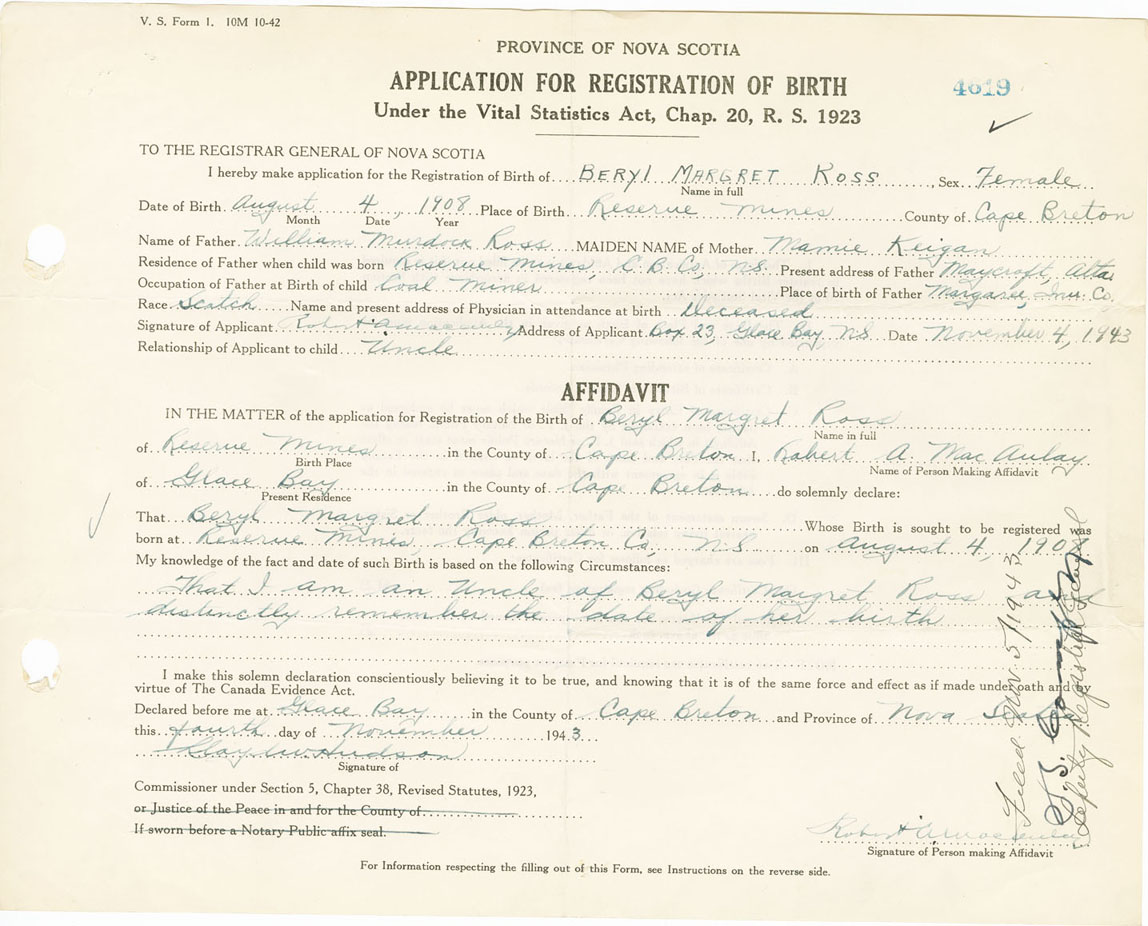 V. S. Form 1. 10M 10-42
PROVINCE OF NOVA SCOTIA
APPLICATION FOR REGISTRATION OF BIRTH
4619
Under the Vital Statistics Act, Chap. 20, R. S. 1923
TO THE REGISTRAR GENERAL OF NOVA SCOTIA
I hereby make application for the Registration of Birth of BERYL MARGRET ROSS, Sex Female
Name in full
Date of Birth August 4, 1908 Place of Birth Reserve Mines County of Cape Breton
Month Date Year
Name of Father William Murdock Ross MAIDEN NAME of Mother Mamie Keigan
Residence of Father when child was born Reserve Mines, C. B. Co, N.S. Present address of Father Maycroft, Alta
Occupation of Father at Birth of child Coal Miner Place of birth of Father Margaree, Inv. Co,
Race Scotch Name and present address of Physician in attendance at birth Deceased
Signature of Applicant Robert A Address of Applicant Box 23, Glace Bay, N.S. Date November 4, 1943
Relationship of Applicant to child Uncle
AFFIDAVIT
IN THE MATTER of the application for Registration of the Birth of Beryl Margret Ross
Name in full
of Reserve Mines in the County of Cape Breton I, Robert A. MacAulay
Birth Place Name of Person Making Affidavit
of Glace Bay in the County of Cape Breton do solemnly declare:
Present Residence
That Beryl Margret Ross Whose Birth is sought to be registered was
born at Reserve Mines, Cape Breton Co, N.S. on August 4, 190
My knowledge of the fact and date of such Birth is based on the following Circumstances:
That I am an Uncle of Beryl Margret Ross and
distinctly remember the date of her birth
I make this solemn declaration conscientiously believing it to be true, and knowing that it is of the same force and effect as if made under oath and by
virtue of The Canada Evidence Act.
Declared before me at Glace Bay in the County of Cape Breton and Province of Nova Scotia
this fourth day of November 1943
Hudson
Signature of
Commissioner under Section 5, Chapter 38, Revised Statutes, 1923,
or Justice of the Peace in and for the County of
If sworn before a Notary Public affix seal.
Robert A
Signature of Person making Affidavit
For Information respecting the filling out of this Form, see Instructions on the reverse side.
Filed Nov. 5/1943
Deputy Registrar General